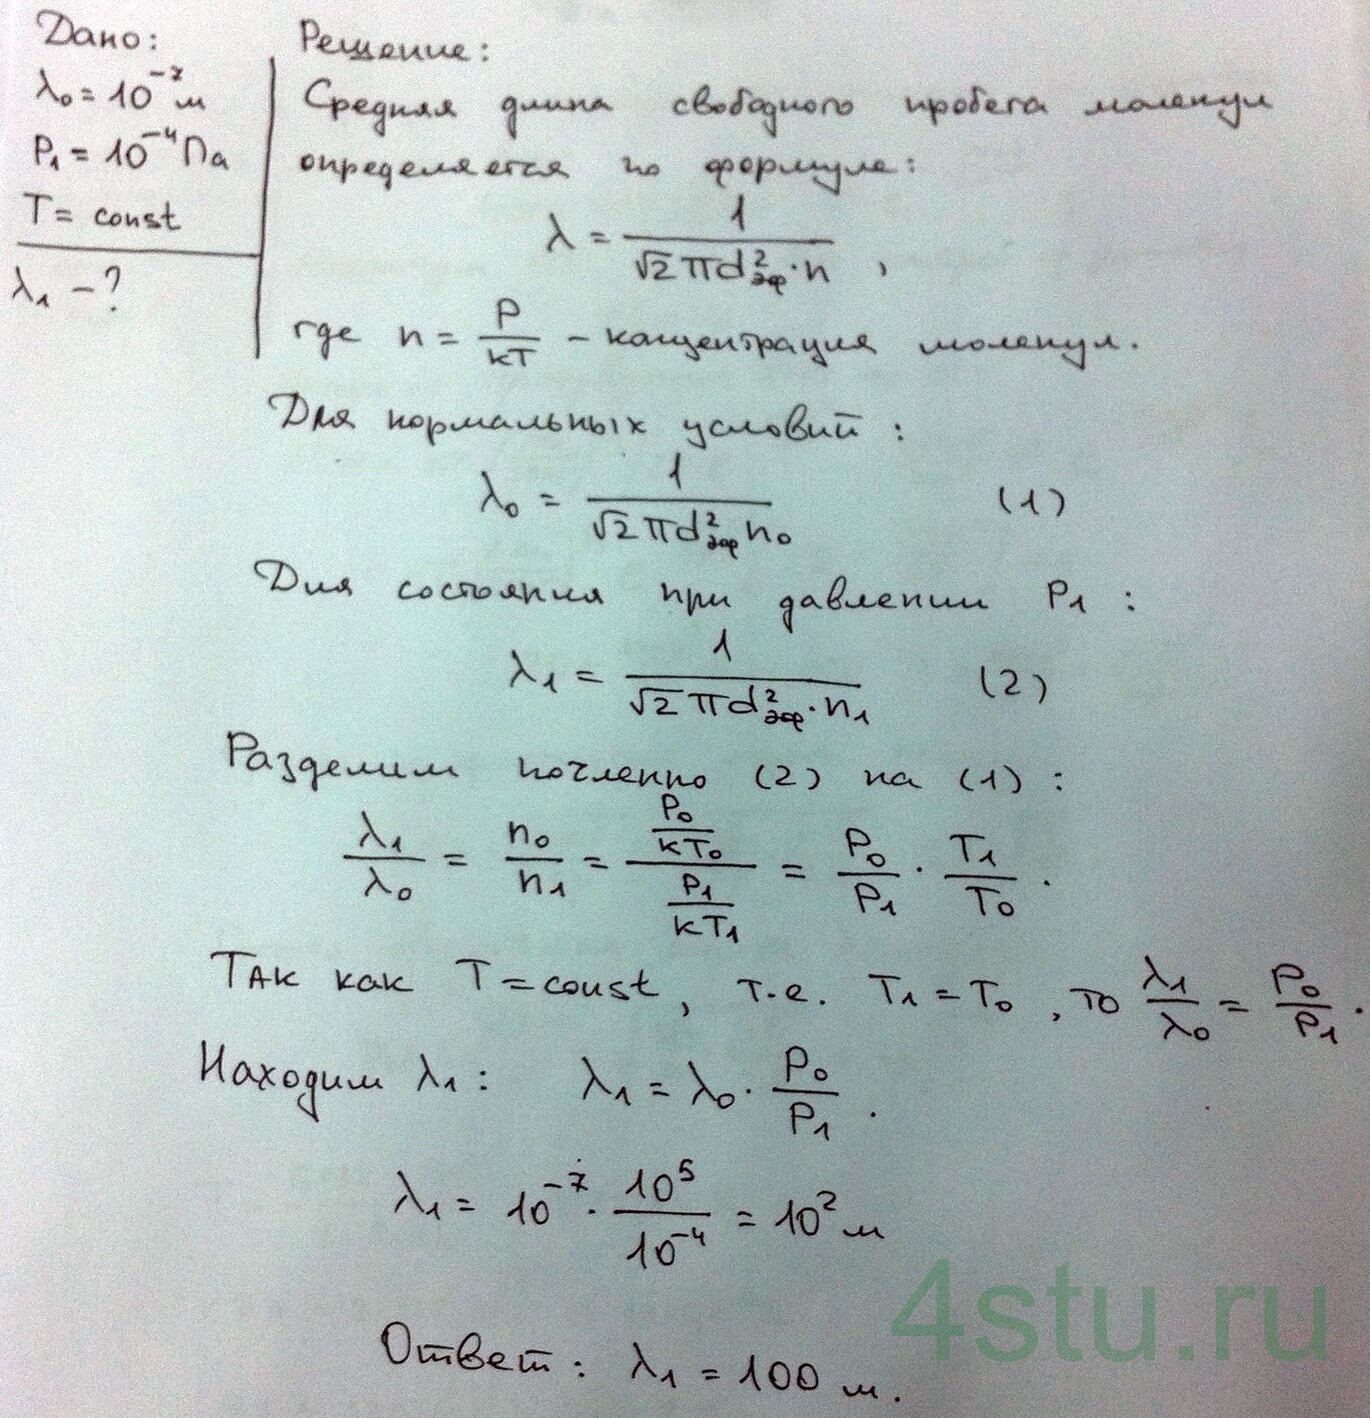 Дано:
λ₀ = 10⁻⁷ м
P₁ = 10⁻⁴ Па
T = const
λ₁ – ?
Решение:
Средняя длина свободного пробега молекул
определяется по формуле:
λ = 1 / (√2 π d²эф · n) ,
где n = P / kT – концентрация молекул.
Для нормальных условий:
λ₀ = 1 / (√2 π d²эф n₀) (1)
Для состояния при давлении P₁ :
λ₁ = 1 / (√2 π d²эф · n₁) (2)
Разделим почленно (2) на (1) :
λ₁ / λ₀ = n₀ / n₁ = (P₀ / kT₀) / (P₁ / kT₁) = P₀ / P₁ · T₁ / T₀ .
Так как T = const, т.е. T₁ = T₀ , то λ₁ / λ₀ = P₀ / P₁ .
Находим λ₁ : λ₁ = λ₀ · P₀ / P₁ .
λ₁ = 10⁻⁷ · 10⁵ / 10⁻⁴ = 10² м
4stu.ru
Ответ : λ₁ = 100 м.